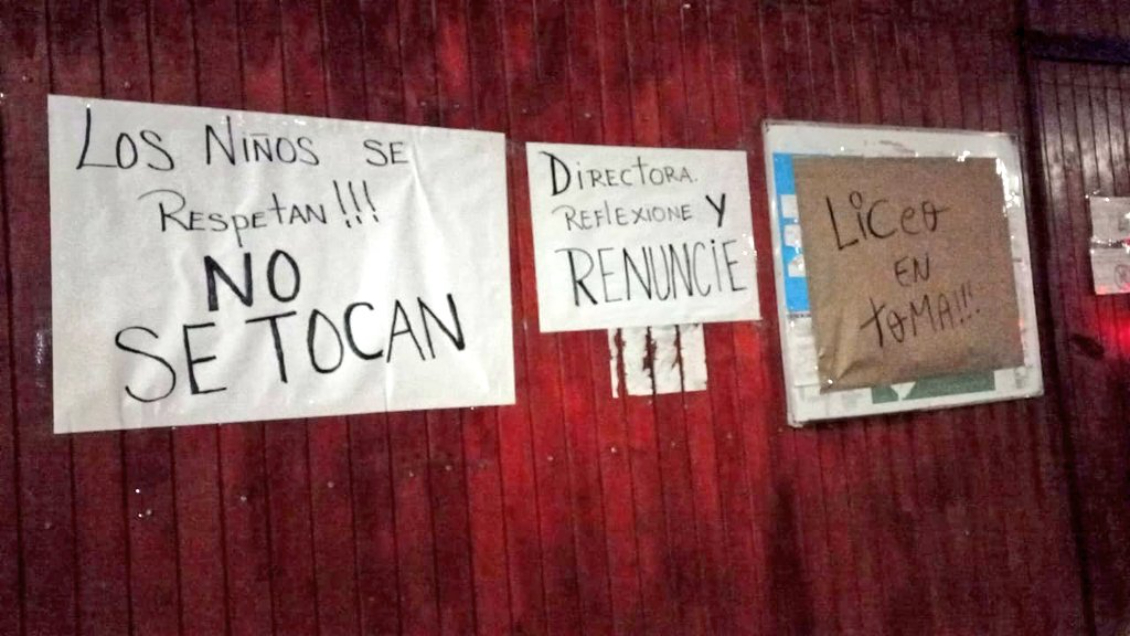 Los Niños se
Respetan!!!
NO
SE TOCAN
Directora.
Reflexione y
RENUNCIE
Liceo
EN
toma!!!